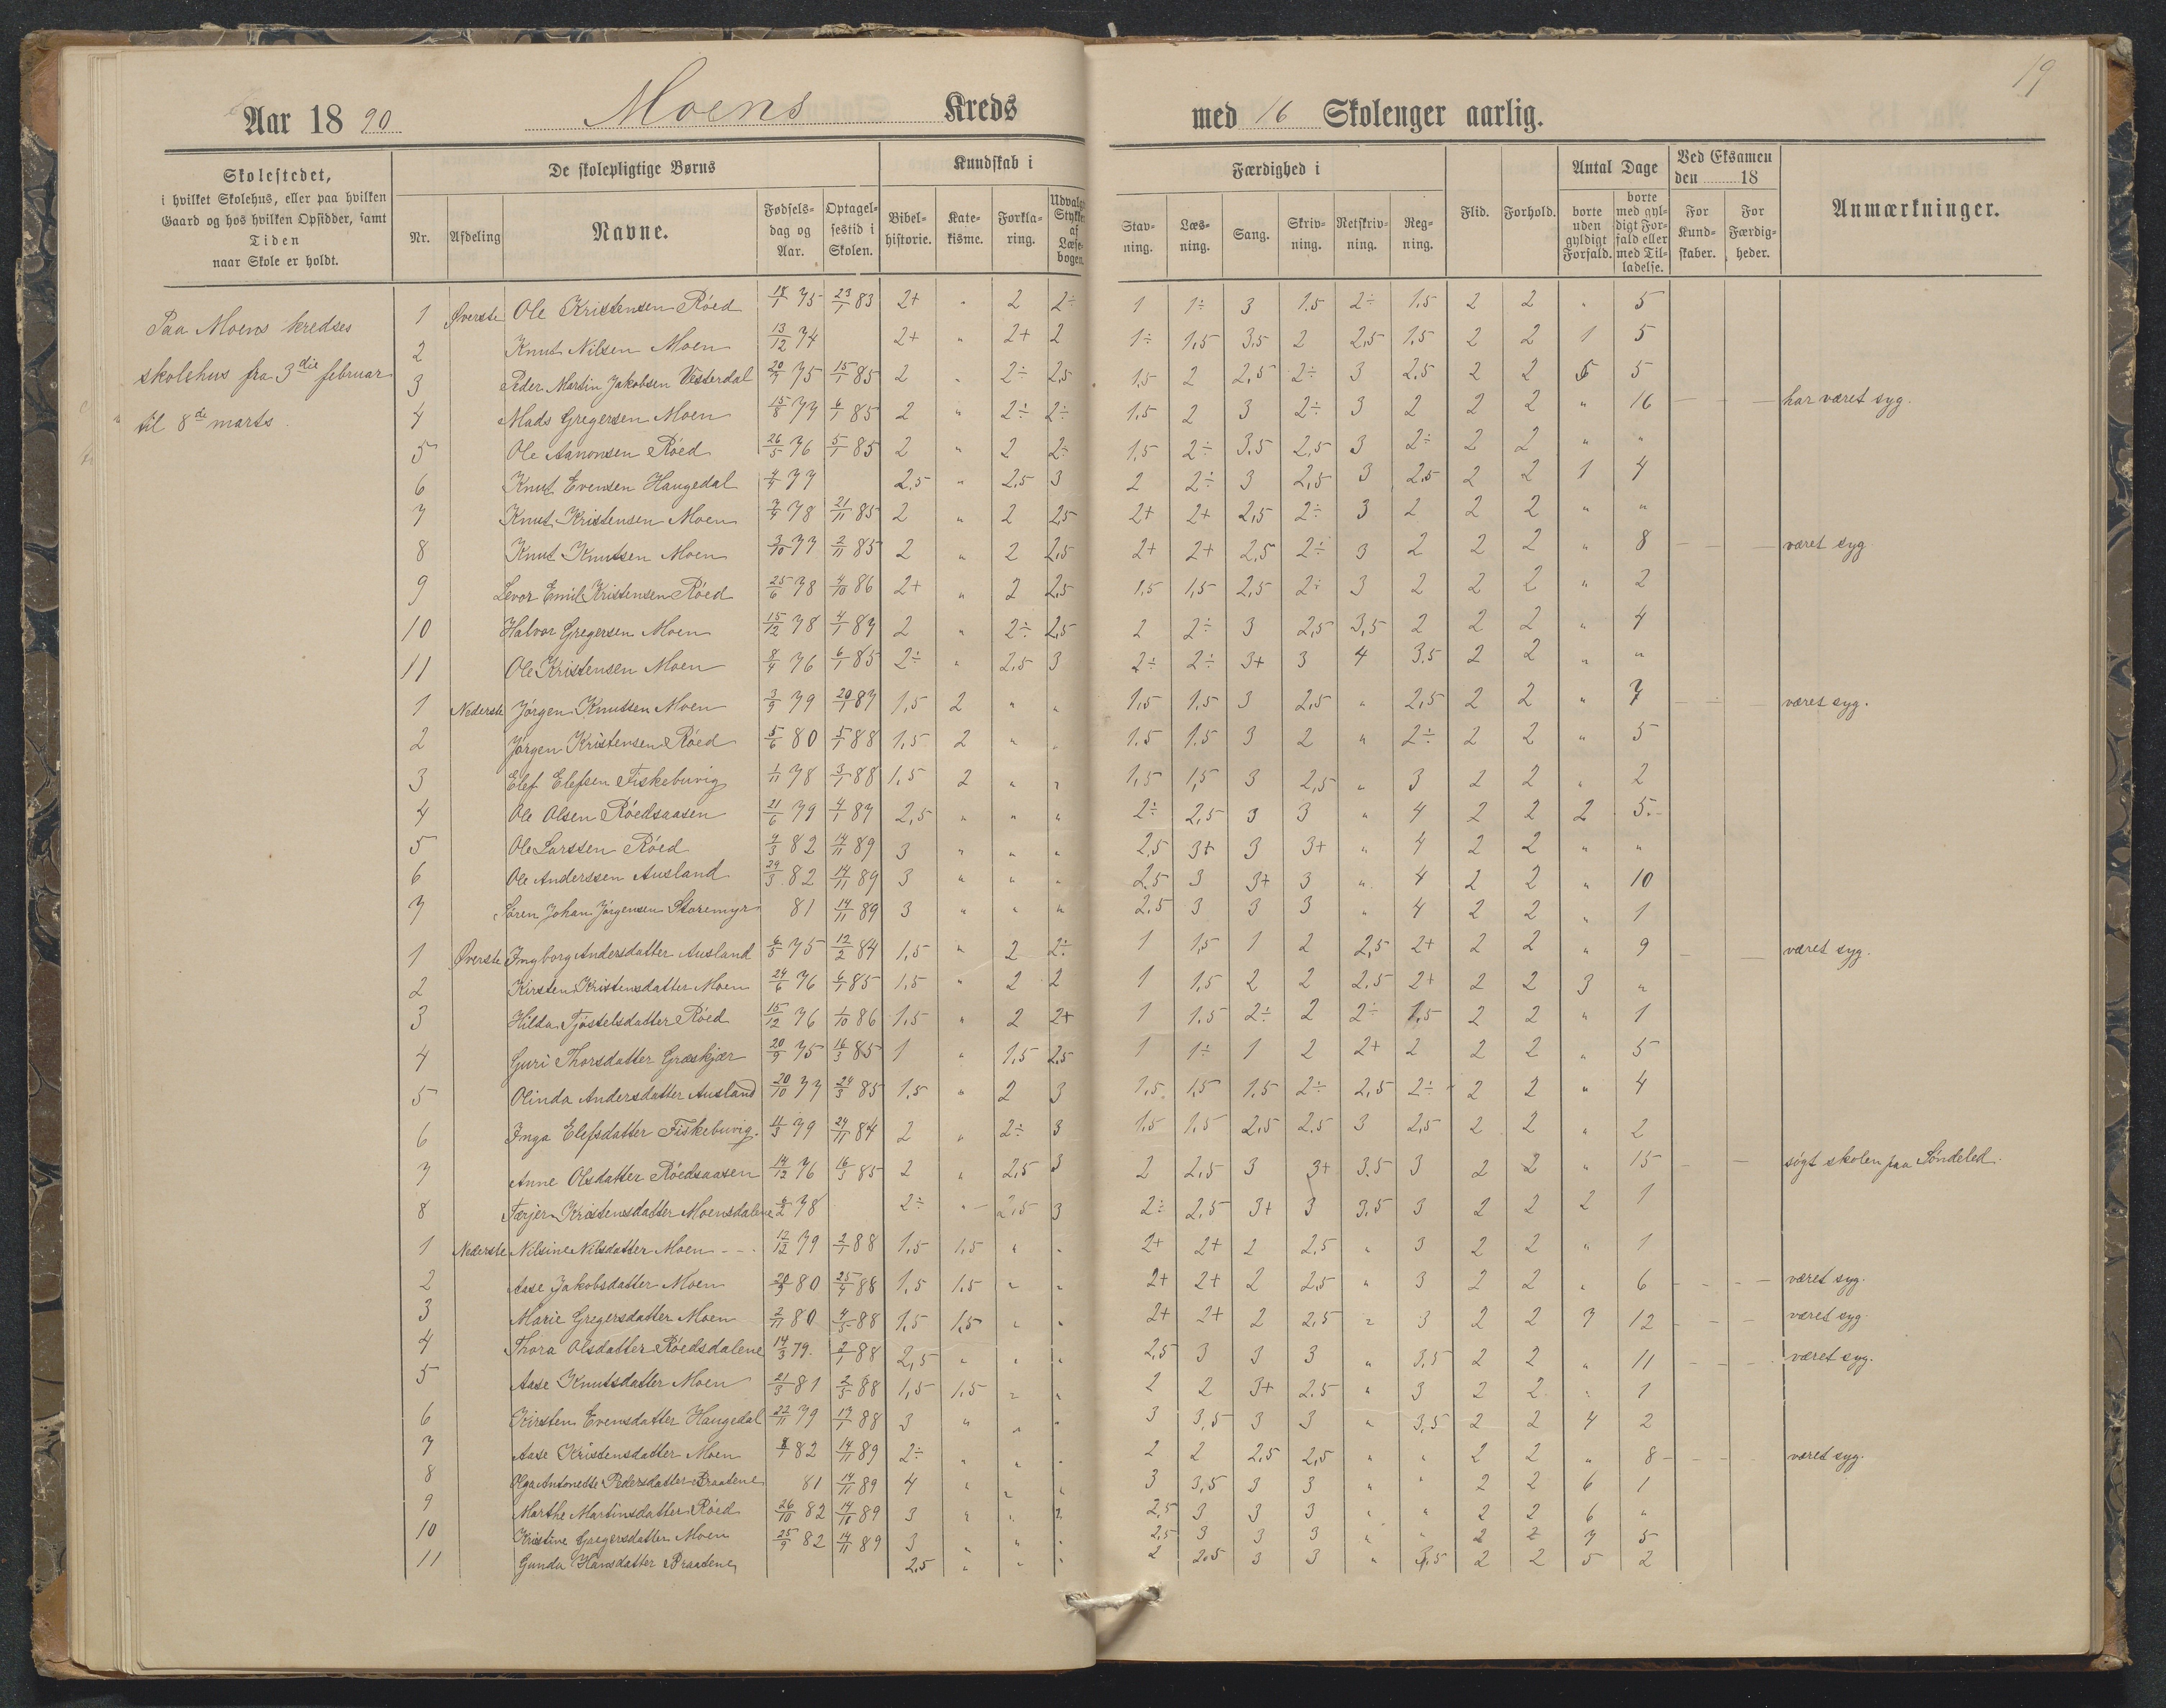 19
Aar 1890 Moens Kreds med 16 Skolenger aarlig.
Skolestedet, i hvilket Skolehus, eller paa hvilken Gaard og hos hvilken Opsidder, samt Tiden naar Skole er holdt.
De skolepligtige Børns
Nr. Afdeling Navne. Fødselsdag og Aar. Optagelsestid i Skolen.
Kundskab i
Bibelhistorie. Katekisme. Forklaring. Udvalgte Stykker af Læsebogen.
Færdighed i
Stavning. Læsning. Sang. Skrivning. Retskrivning. Regning.
Flid. Forhold.
Antal Dage
borte uden gyldigt Forfald. borte med gyldigt Forfald eller med Tilladelse.
Ved Eksamen den 18
For Kundskaber. For Færdigheder.
Anmærkninger.
Paa Moens kredses
skolehus fra 3die februar
til 8de marts.
1 Øverste Ole Kristensen Röed 18/1 75 23/1 83 2+ " 2 2÷ 1 1÷ 3 1.5 2÷ 1.5 2 2 " 5
2 Knut Nilsen Moen 13/12 74 2+ " 2+ 2 1÷ 1,5 3,5 2 2,5 1.5 2 2 1 5
3 Peder Martin Jakobsen Vesterdal 20/7 75 15/1 85 2 " 2÷ 2,5 1,5 2 2,5 2÷ 3 2.5 2 2 5 5
4 Mads Gregersen Moen 15/8 77 6/1 85 2 " 2÷ 2÷ 1.5 2 3 2÷ 3 2 2 2 " 16 har været syg.
5 Ole Aanonsen Röed 26/5 76 5/1 85 2 " 2 2÷ 1,5 2÷ 3.5 2,5 3 2÷ 2 2 " "
6 Knut Evensen Haugedal 4/4 77 2.5 " 2,5 3 2 2÷ 3 2,5 3 2,5 2 2 1 4
7 Knut Kristensen Moen 7/4 78 21/11 85 2 " 2 2,5 2+ 2+ 2,5 2÷ 3 2 2 2 " "
8 Knut Knutsen Moen 3/10 77 2/11 85 2 " 2 2,5 2+ 2+ 2,5 2÷ 3 2 2 2 " 8 været syg
9 Levor Emil Kristensen Röed 25/6 78 4/10 86 2+ " 2 2,5 1,5 1,5 2,5 2÷ 3 2 2 2 " 2
10 Halvor Gregersen Moen 15/12 78 4/1 87 2 " 2÷ 2,5 2 2÷ 3 2,5 3,5 2 2 2 " 4
11 Ole Kristensen Moen 8/4 76 6/1 85 2÷ " 2,5 3 2÷ 2÷ 3+ 3 4 3.5 2 2 " "
1 Nederste Jörgen Knutsen Moen 3/9 79 20/1 87 1,5 2 " " 1,5 1.5 3 2,5 " 2,5 2 2 " 7 været syg.
2 Jörgen Kristensen Röed 5/6 80 5/1 88 1,5 2 " " 1.5 1.5 3 2 " 2÷ 2 2 " 5
3 Elef Elefsen Fiskebuvig 1/11 78 3/1 88 1,5 2 " " 1,5 1,5 3 2,5 " 3 2 2 " 2
4 Ole Olsen Röedsaasen 21/6 79 4/1 87 2,5 " " " 2÷ 2,5 3 3 " 4 2 2 2 5
5 Ole Larssen Röed 4/3 82 14/11 89 3 " " " 2,5 3+ 3 3+ " 4 2 2 " "
6 Ole Anderssen Ausland 29/3 82 14/11 89 3 " " " 2,5 3 3+ 3 " 4 2 2 " 10
7 Sören Johan Jörgensen Storemyr 81 14/11 89 3 " " " 2,5 3 3 3 " 4 2 2 " 1
1 Øverste Ingborg Andersdatter Ausland 6/5 75 12/2 84 1,5 " 2 2÷ 1 1,5 1 2 2,5 2+ 2 2 " 9 været syg.
2 Kirsten Kristensdatter Moen 24/6 76 6/1 85 1,5 " 2 2 1 1,5 2 2 2,5 2+ 2 2 3 "
3 Hilda Tjöstelsdatter Röed 15/12 76 1/10 86 1.5 " 2 2+ 1 1.5 2÷ 2 2÷ 1,5 2 2 " 1
4 Guri Thorsdatter Græskjær 20/9 75 16/3 85 1 " 1,5 2,5 1 1÷ 1 2 2+ 2 2 2 " 5
5 Olinda Andersdatter Ausland 20/10 77 24/3 85 1.5 " 2 3 1,5 1,5 1.5 2÷ 2,5 2÷ 2 2 " 4
6 Inga Elefsdatter Fiskebuvig 4/3 79 24/11 84 2 " 2÷ 3 1.5 1.5 2,5 2.5 3 2,5 2 2 " 2
7 Anne Olsdatter Röedsaasen 14/12 76 16/3 85 2 " 2,5 3 2 2,5 3 3+ 3.5 3 2 2 " 15 sögt skolen paa Söndeled.
8 Tarjer Kristensdatter Moensdalene 6/2 78 2÷ " 2,5 3 2÷ 2.5 3+ 3 3.5 3 2 2 2 1
1 Nederste Nilsine Nilsdatter Moen 12/12 79 2/1 88 1.5 1.5 " " 2+ 2+ 2 2.5 " 3 2 2 " 1
2 Aase Jakobsdatter Moen 80 25/4 88 1,5 1.5 " " 2+ 2+ 2 2,5 " 3 2 2 " 6 været syg.
3 Marie Gregersdatter Moen 2/11 80 4/5 88 1.5 1,5 " " 2+ 2+ 2 2,5 " 3 2 2 7 12 været syg
4 Thora Olsdatter Röedsdalene 14/3 79. 2/1 88 2,5 " " " 2,5 3 3 3 " 3,5 2 2 " 11 været syg.
5 Aase Knutsdatter Moen 21/3 81 2/5 88 1,5 1,5 " " 2 2 3+ 2.5 " 3 2 2 " 1
6 Kirsten Evensdatter Haugedal 22/11 79 17/1 88 3 " " " 3 3,5 3 3 " 3,5 2 2 4 2
7 Aase Kristensdatter Moen 82 14/11 89 2÷ " " " 2 2 2,5 2,5 " " 2 2 " 8 været syg.
8 Olga Antonette Pedersdatter Braatene 81 14/11 89 4 " " " 3 3,5 3 3 " " 2 2 6 1
9 Marthe Martinsdatter Röed 26/10 82 14/11 89 3 " " " 2,5 3 3 3 " " 2 2 6 "
10 Kristine Gregersdatter Moen 25/9 82 14/11 89 3 " " " 2,5 3 3 3 " " 2 2 7 5
11 Gunda Hansdatter Braatene 2,5 " " " 2 2.5 3 3 " 3,5 2 2 5 2